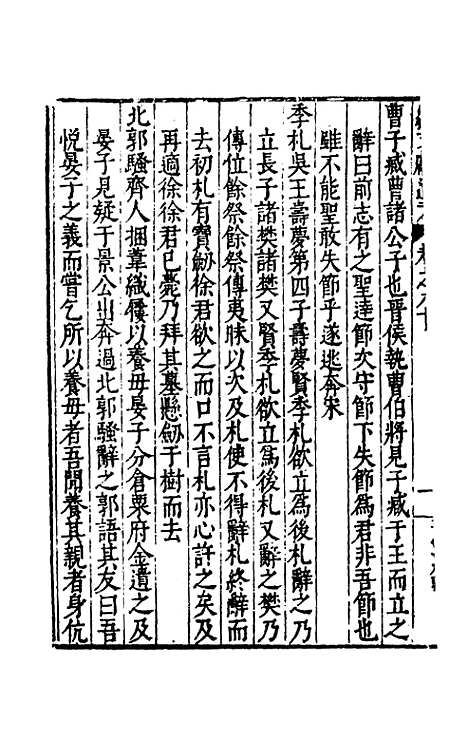 曹子臧曹諸公子也晋侯執曹伯將見子臧于王而立之
辭曰前志有之聖達節次守節下失節爲君非吾節也
雖不能聖敢失節乎遂逃奔宋
季札吳王壽夢第四子壽夢賢季札欲立爲後札辭之乃
立長子諸樊諸樊又賢季札欲立爲後札又辭之樊乃
傳位餘祭餘祭傳夷昧以次及札使不得辭札終辭而
去初札有寶劒徐君欲之而口不言札亦心許之矣及
再適徐徐君已薨乃拜其墓懸劒于樹而去
北郭騷齊人捆葦織屨以養母晏子分倉粟府金遺之及
晏子見疑于景公出奔過北郭騷辭之郭語其友曰吾
悅晏子之義而嘗乞所以養母者吾聞養其親者身伉